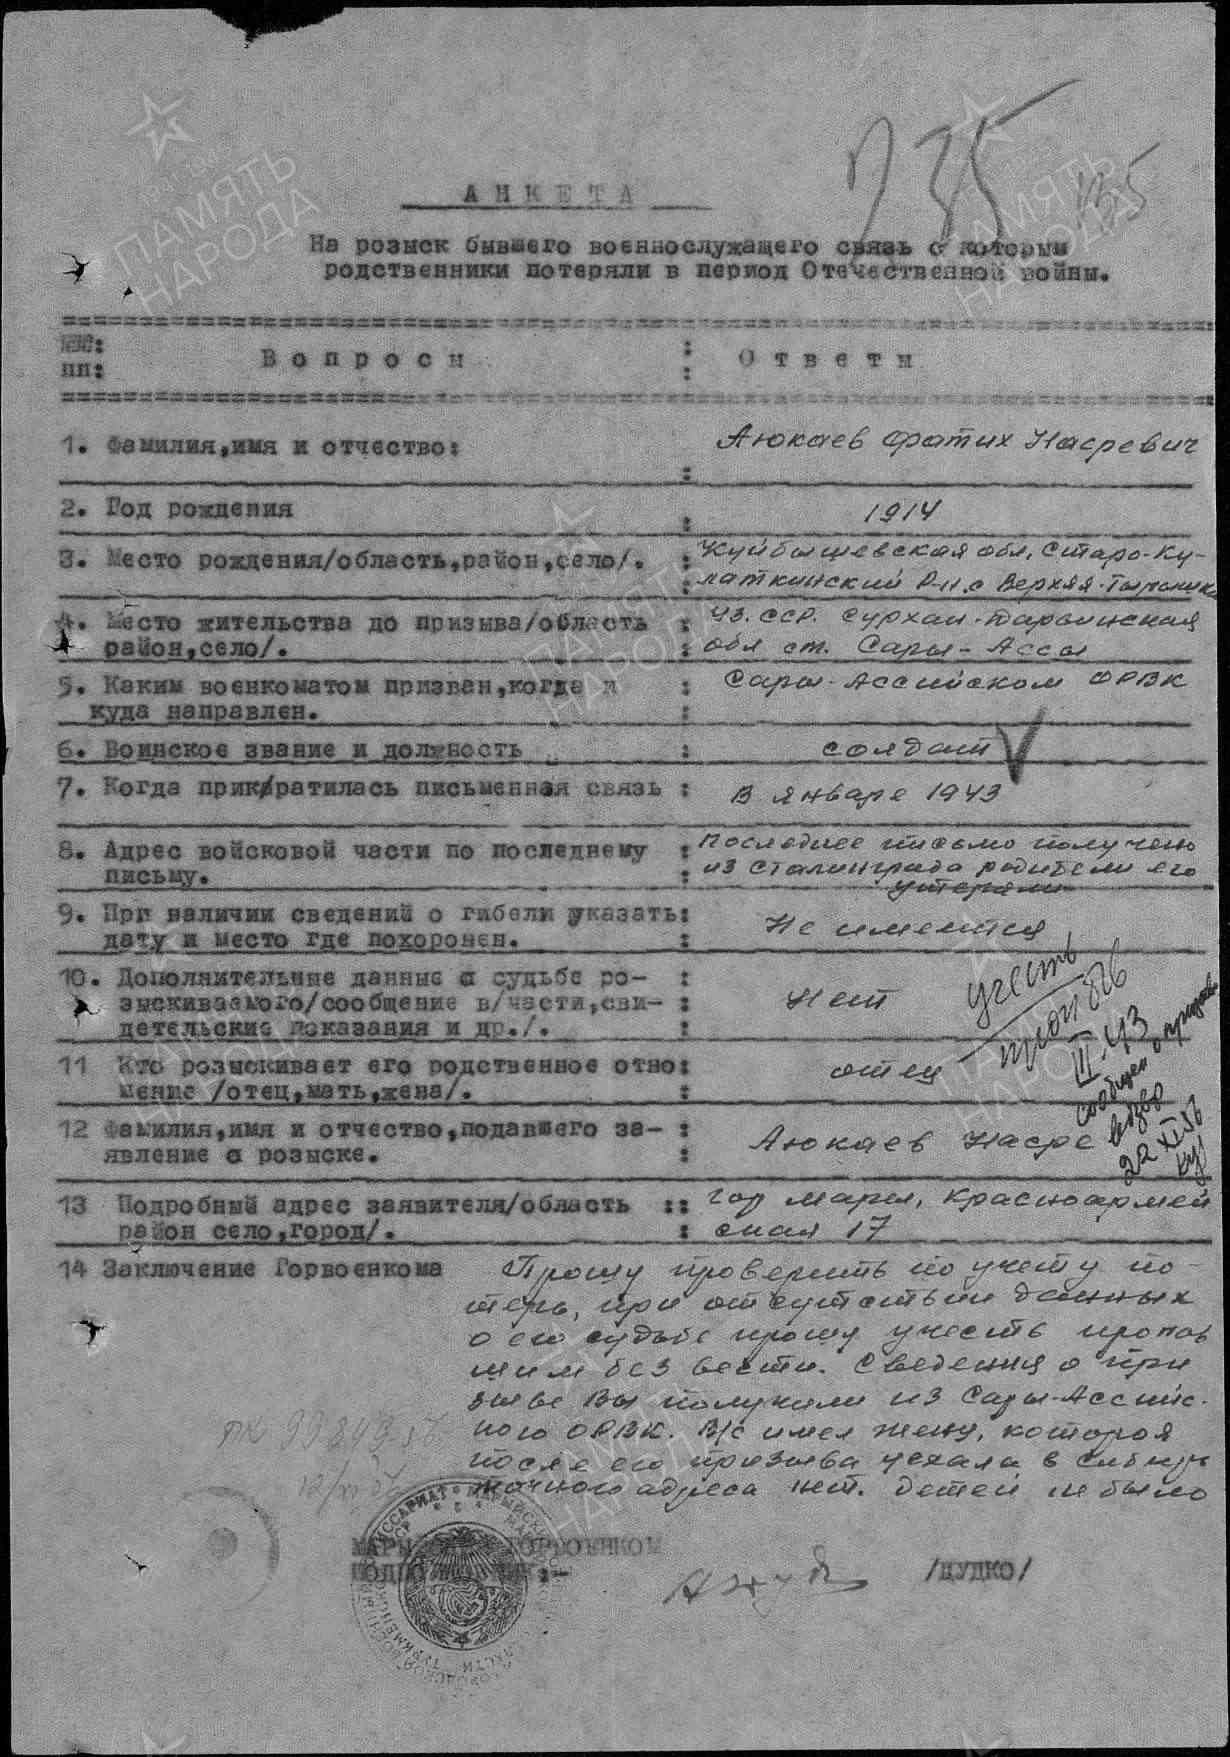 П 35
АНКЕТА
На розыск бывшего военнослужащего связь с которым
родственники потеряли в период Отечественной войны.
№№:
пп:
Вопросы : Ответы
1. Фамилия,имя и отчество: Аюкаев Фатих Насревич
2. Год рождения : 1914
3. Место рождения/область,район,село/. : Куйбышевская обл, Старо-Ку-
латкинский р-н. с Верхяя-
4. Место жительства до призыва/область : Уз. ССР. Сурхан-Дарьинская
район,село/. : обл ст. Сары-Ассы
5. Каким военкоматом призван,когда и : Сары-Ассийском ОРВК
куда направлен. :
6. Воинское звание и должность : солдат
7. Когда прикратилась письменная связь : В январе 1943
8. Адрес войсковой части по последнему : последнее письмо получено
письму. : из Сталинграда родители его
утеряли
9. При наличии сведений о гибели указать: Не имеется
дату и место где похоронен. :
10. Дополнительные данные о судьбе ро- :
зыскиваемого/сообщение в/части,сви- : Нет
детельские показания и др./. :
11 Кто розыскивает его родственное отно: отец
шение /отец,мать,жена/. :
12 Фамилия,имя и отчество,подавшего за- : Аюкаев Насре
явление о розыске. :
13 Подробный адрес заявителя/область :: гор Мары, Красноармей
район село,город/. : ская 17
учесть
проп б/в
III-43
сообщен о призыве
22 XI 56
14 Заключение Горвоенкома Прошу проверить по учету по-
терь, при отсутствии данных
о его судьбе прошу учесть пропав
шим без вести. Сведения о при
зыве Вы получили из Сары-Ассийс-
кого ОРВК. В/с имел жену, которая
после его призыва уехала в Сибирь
точного адреса нет. Детей не было
МАРЫЙСКИЙ ГОРВОЕНКОМ
ПОДПОЛКОВНИК:- /ДУДКО/
ПАМЯТЬ
НАРОДА